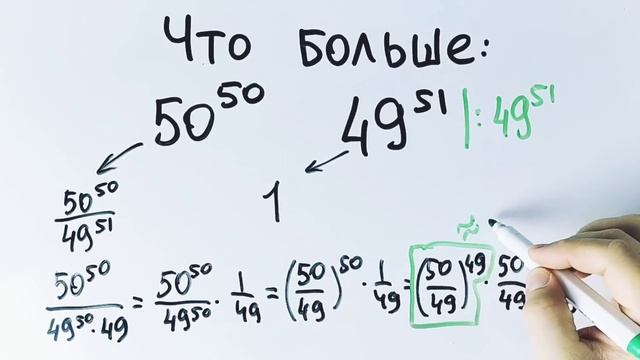 Что больше:
50^50 49^51 |: 49^51
50^50/49^51 1
≈
50^50/(49^50 · 49) = 50^50/49^50 · 1/49 = (50/49)^50 · 1/49 = (50/49)^49 · 50/49